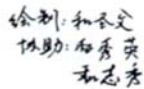 绘制：和圣文
协助：和秀英
和志秀